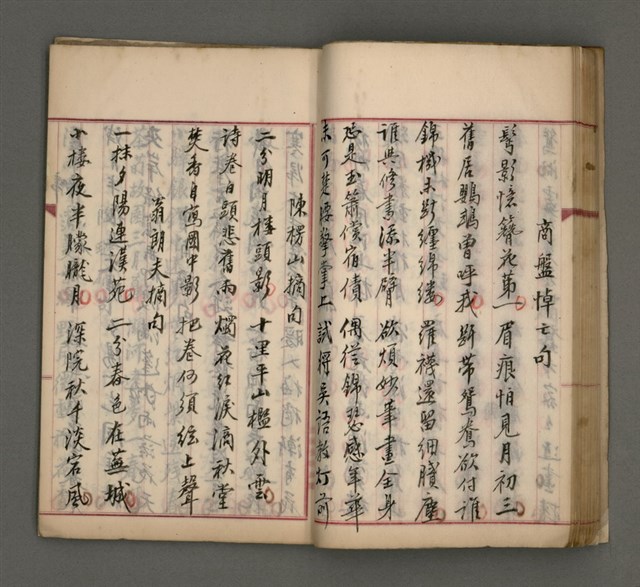 商盤悼亡句
鬢影憶簪花第一 眉痕怕見月初三
舊居鸚鵡曾呼我 斷帶鴛鴦欲付誰
錦機未斷纏綿縷 羅襪還留細膩塵
誰與修書添半臂 欲煩妙筆畫全身
恐是玉簫償宿債 偶從錦瑟感年華
未可楚腰擎掌上 試將吳語教灯前
陳楞山摘句
二分明月樓頭影 十里平山檻外雲
詩卷白頭悲舊雨 燭花紅淚滴秋堂
焚香自寫圖中影 把卷何須絃上聲
翁朗夫摘句
一抹夕陽連漢苑 二分春色在蕪城
小樓夜半朦朧月 深院秋千淡宕風